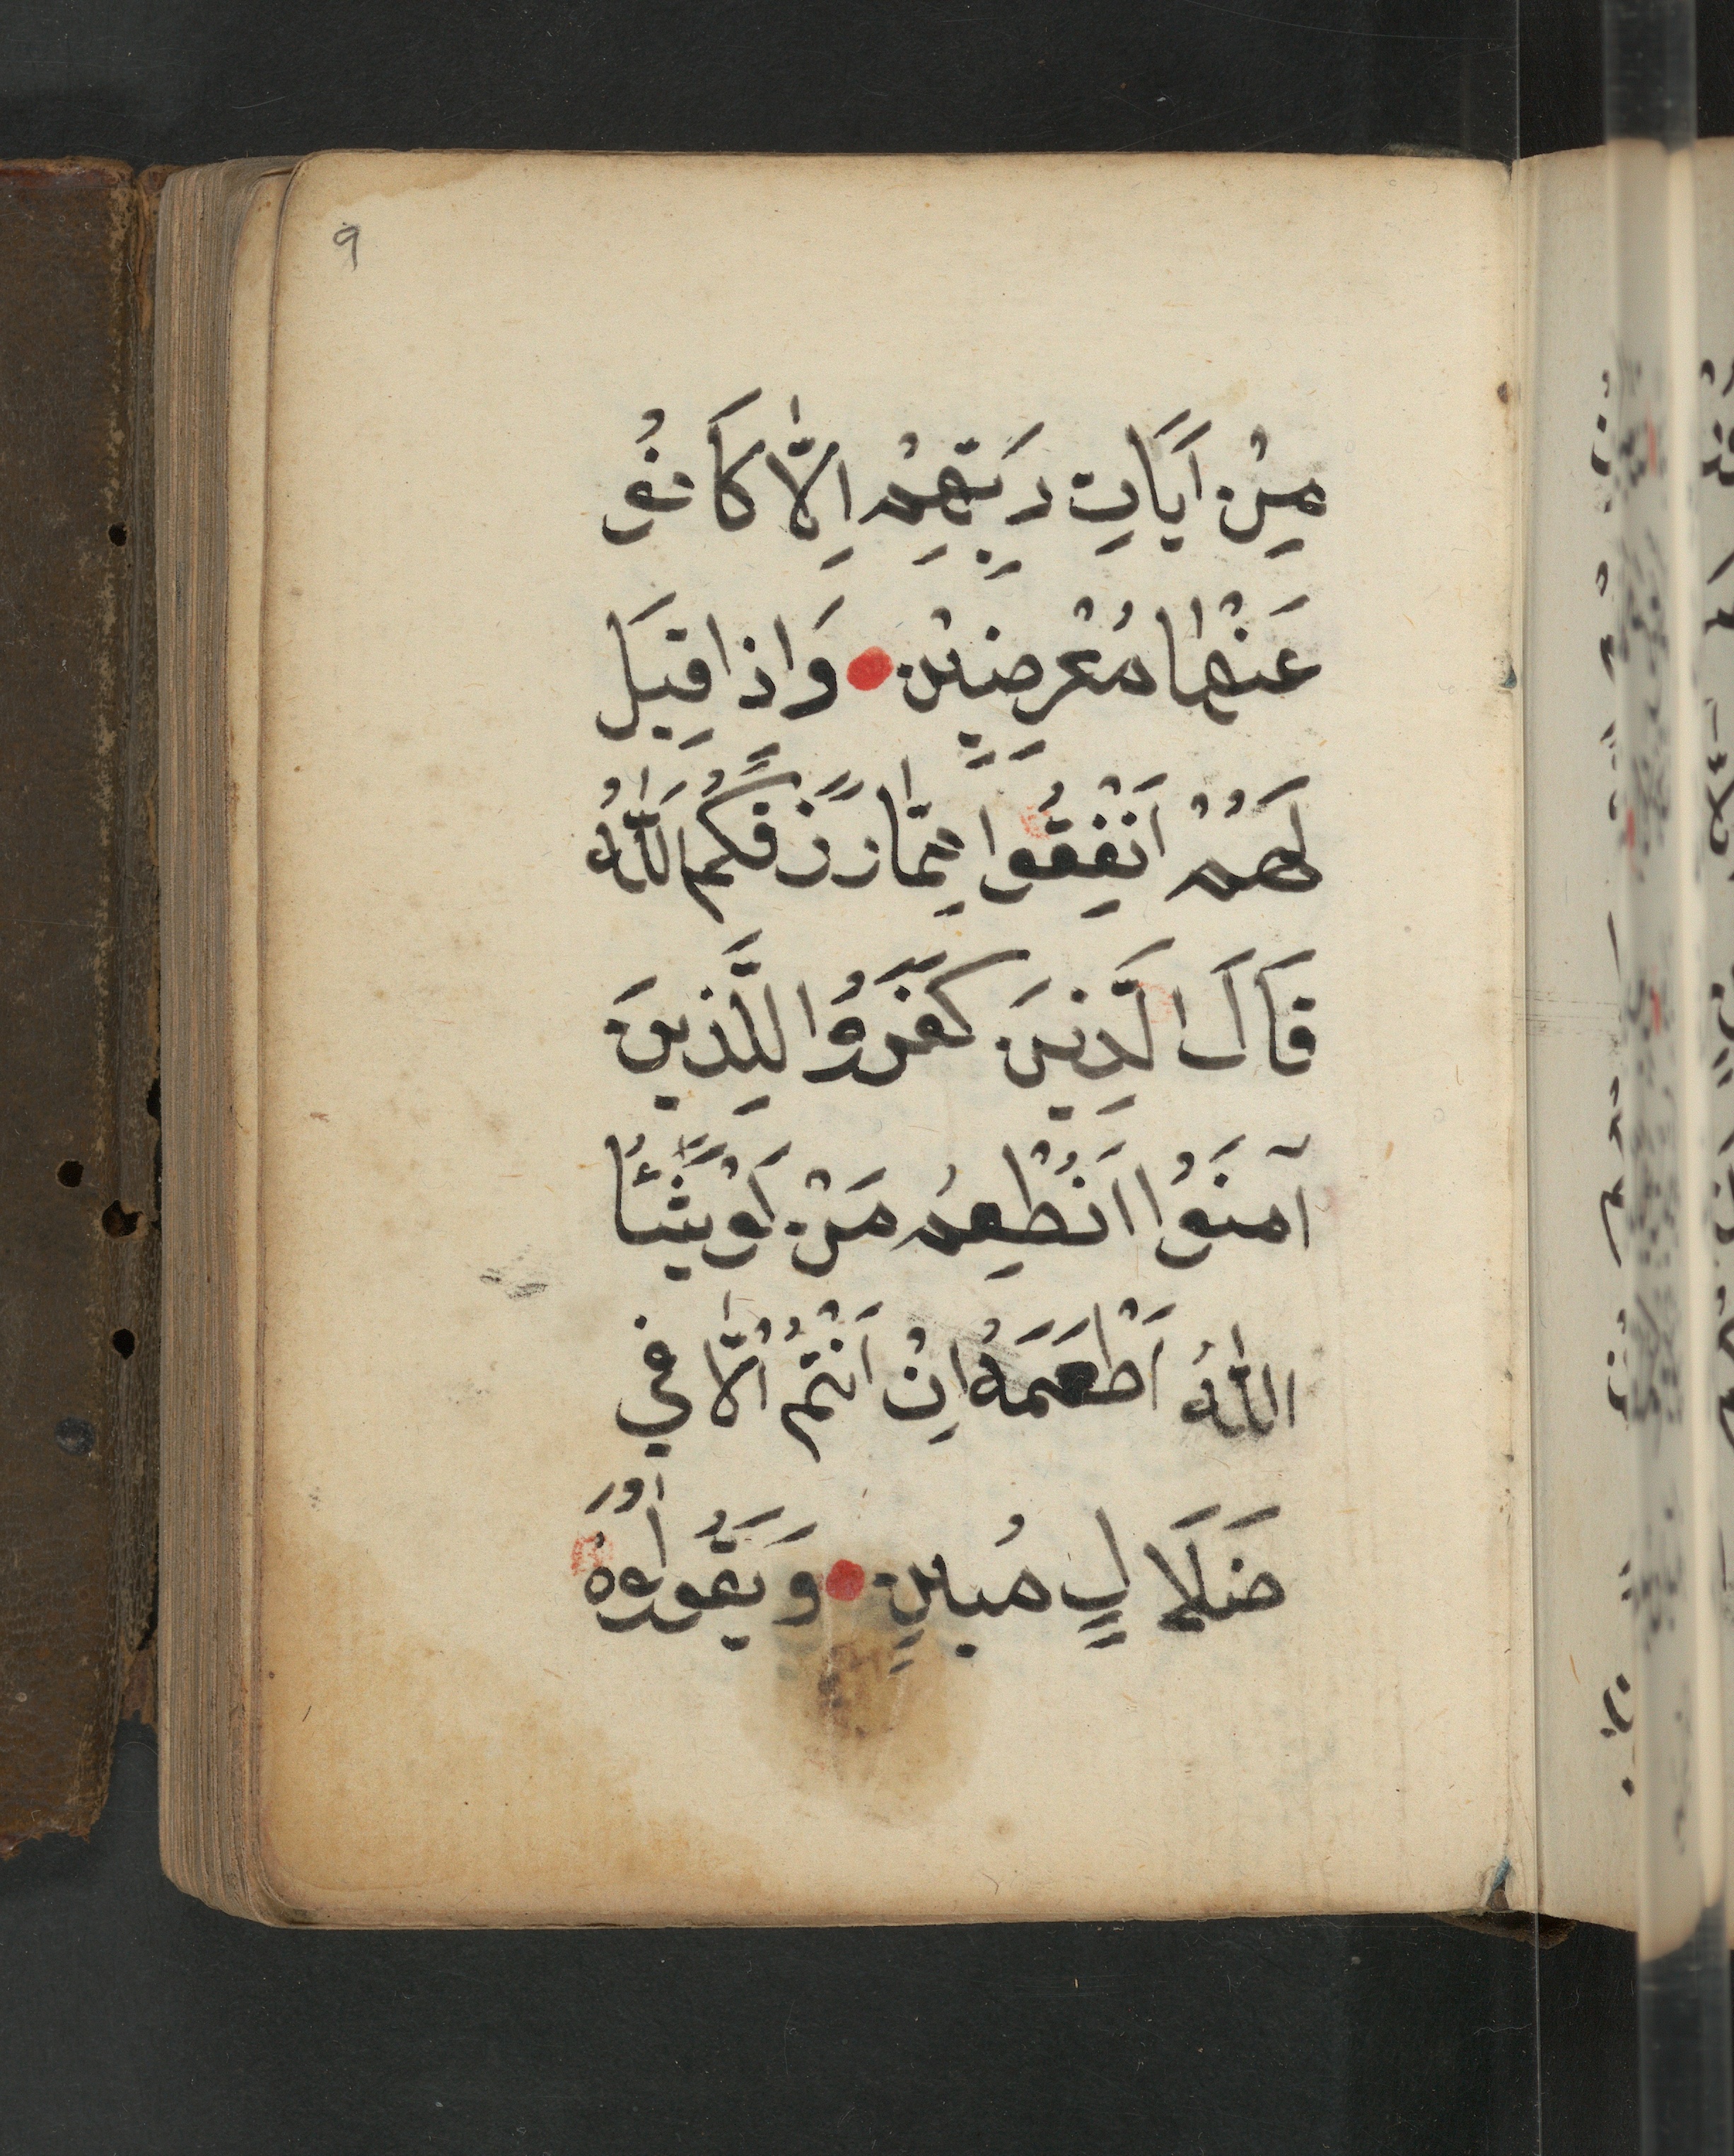 9
مِنْ اَيَاتِ رَبِّهِمْ اِلَّا كَانُو
عَنْهَا مُعْرِضِيْنَ وَاِذَا قِيْلَ
لَهُمْ اَنْفِقُوا مِمَّا رَزَقَكُمُ اللّٰهُ
قَالَ الَّذِيْنَ كَفَرُوا لِلَّذِيْنَ
آمَنُوا اَنُطْعِمُ مَنْ لَوْ يَشَاءُ
اللّٰهُ اَطْعَمَهُ اِنْ اَنْتُمْ اِلَّا فِي
ضَلَالٍ مُبِيْنٍ وَيَقُولُونَ